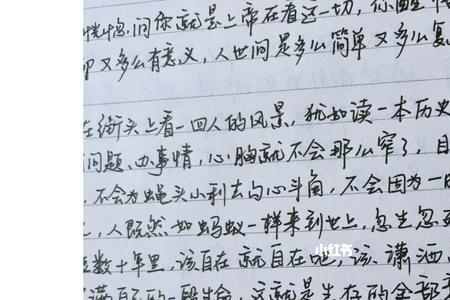 恍惚.间你就是上帝在看这一切,你
又多么有意义,人世间是多么简单又多么复
在街头上看一四人的风景,犹如读一本历史
问题、办事情,心胸就不会那么窄了,目
,不会为蝇头小利去勾心斗角,不会因为一
,人既然如蚂蚁一样来到世上,忽生忽
数十年里,该自在就自在吧,该潇洒
满自己的一段生命,这就是生存的全部
小红书